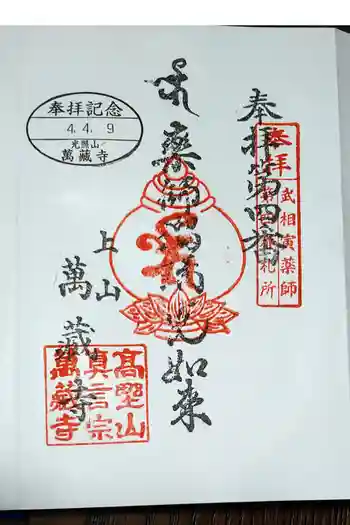 奉拝第四番
奉拝
武相寅薬師
第四番札所
薬師瑠璃光如来
上山
萬藏寺
奉拝記念
4.4.9
光照山
萬藏寺
高野山
真言宗
萬藏寺